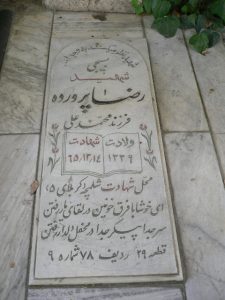 بسیجی
شهید
رضا پرورده
فرزند محمد علی
ولادت شهادت
۱۳۳۹ ۶۵/۱۳/۱۴
محل شهادت شلمچه (کربلای ۵)
ای خوشا با فرق خونین در لقای یار رفتن
سر جدا پیکر جدا در محفل دلدار رفتن
قطعه ۲۹ ردیف ۷۸ شماره ۹